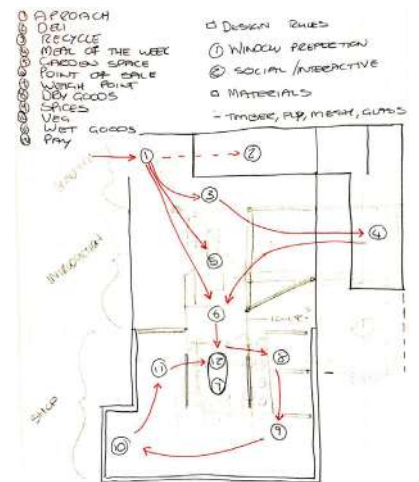 ① APPROACH
② DELI
③ RECYCLE
④ MEAL OF THE WEEK
⑤ GARDEN SPACE
⑥ POINT OF SALE
⑦ WEIGH POINT
⑧ DRY GOODS
⑨ SPICES
⑩ VEG
⑪ WET GOODS
⑫ PAY
□ DESIGN RULES
① WINDOW
② SOCIAL / INTERACTIVE
□ MATERIALS
- TIMBER, PLY, MESH, GLASS
① ②
③
④
⑤
INTRODUCTION
⑥
⑫ ⑧
⑪
⑦
SHOP
⑨
⑩